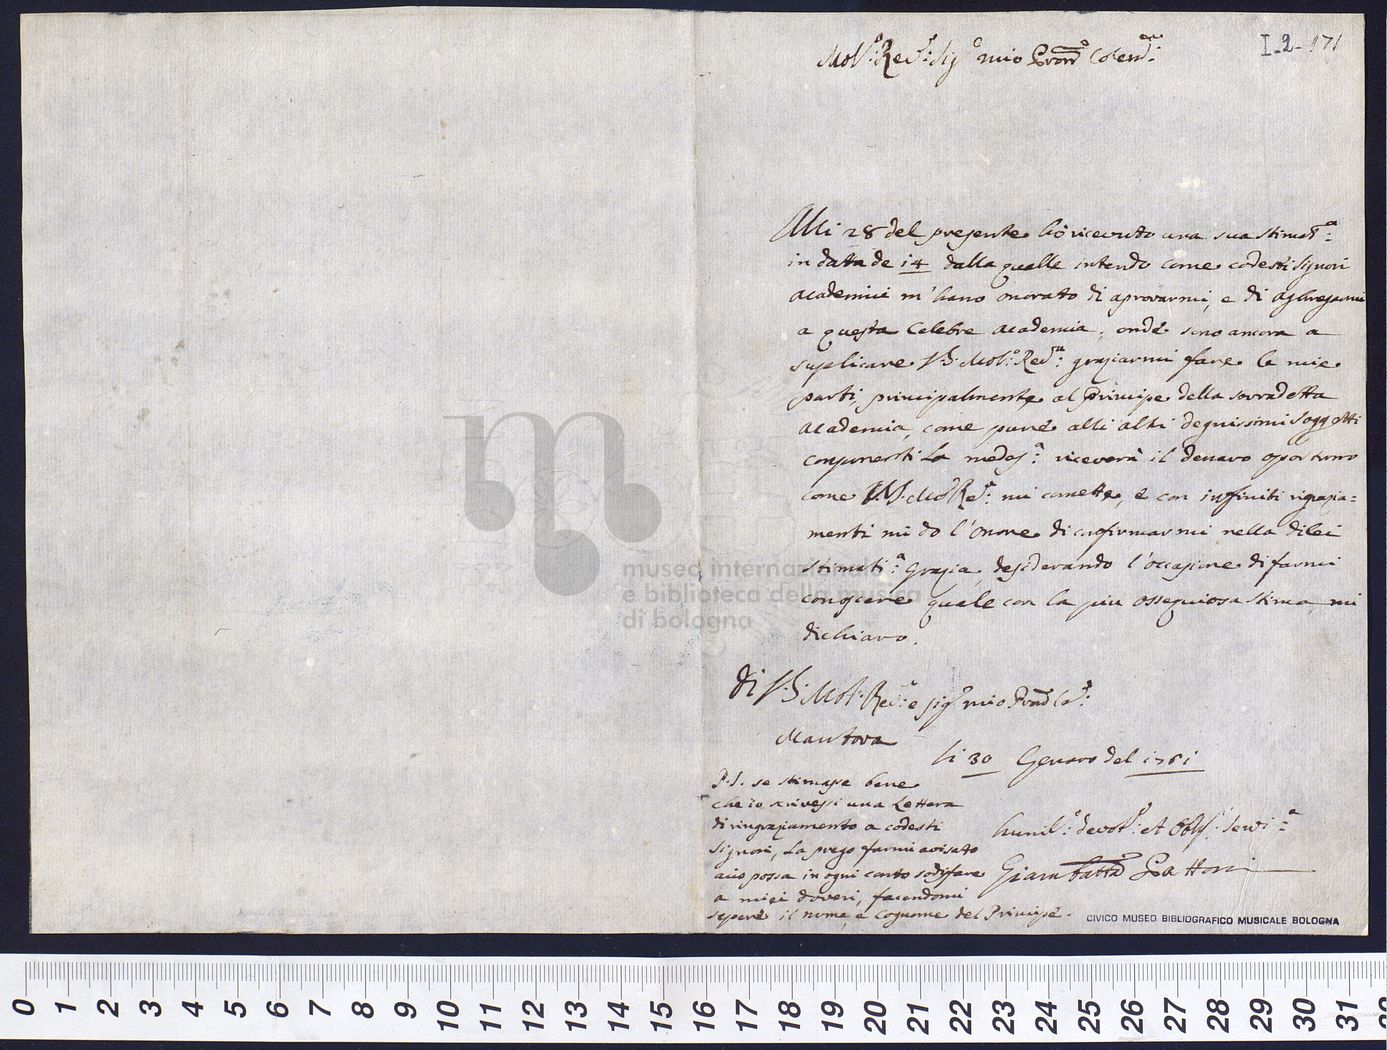 I-2-171
Mol: Red: Sig mio Pron Colend:
Alli 28 del presente hò ricevuto una sua stimat:a
in data de 14 dalla qualle intendo come codesti Signori
academici m'hano onorato di aprovarmi, e di aghregarmi
a questa Celebre academia, onde sono ancora a
suplicare V.S. Mol:o Red:a graziarmi fare le mie
parti, principalmente al Principe della sovradetta
academia, come pure alli altri degnissimi Soggetti
componenti la medes:a riceverà il denaro oportuno
come V.S. Mol Re: mi comette, e con infiniti rigrazia=
menti mi do l'onore di confirmarmi nella di lei
stimati:a Grazia, desiderando l'occasione di farmi
conoscere quale con la piu ossequiosa stima, mi
dichiaro.
di V.S. Mol: Red: e Sig mio Pron Col:
Mantova
li 30 Genaro del 1761
P.S. se stimasse bene
che io scrivessi una Lettera
di ringraziamento a codesti
Signori, La prego farmi avisato
acio possa in ogni conto sodisfare
a miei doveri, facendomi
sapere il nome, e cognome del Principe.
humil: devot: et Obl: servi:
Giambatta Pattoni
museo internazionale
e biblioteca della musica
di bologna
CIVICO MUSEO BIBLIOGRAFICO MUSICALE BOLOGNA
0 1 2 3 4 5 6 7 8 9 10 11 12 13 14 15 16 17 18 19 20 21 22 23 24 25 26 27 28 29 30 31